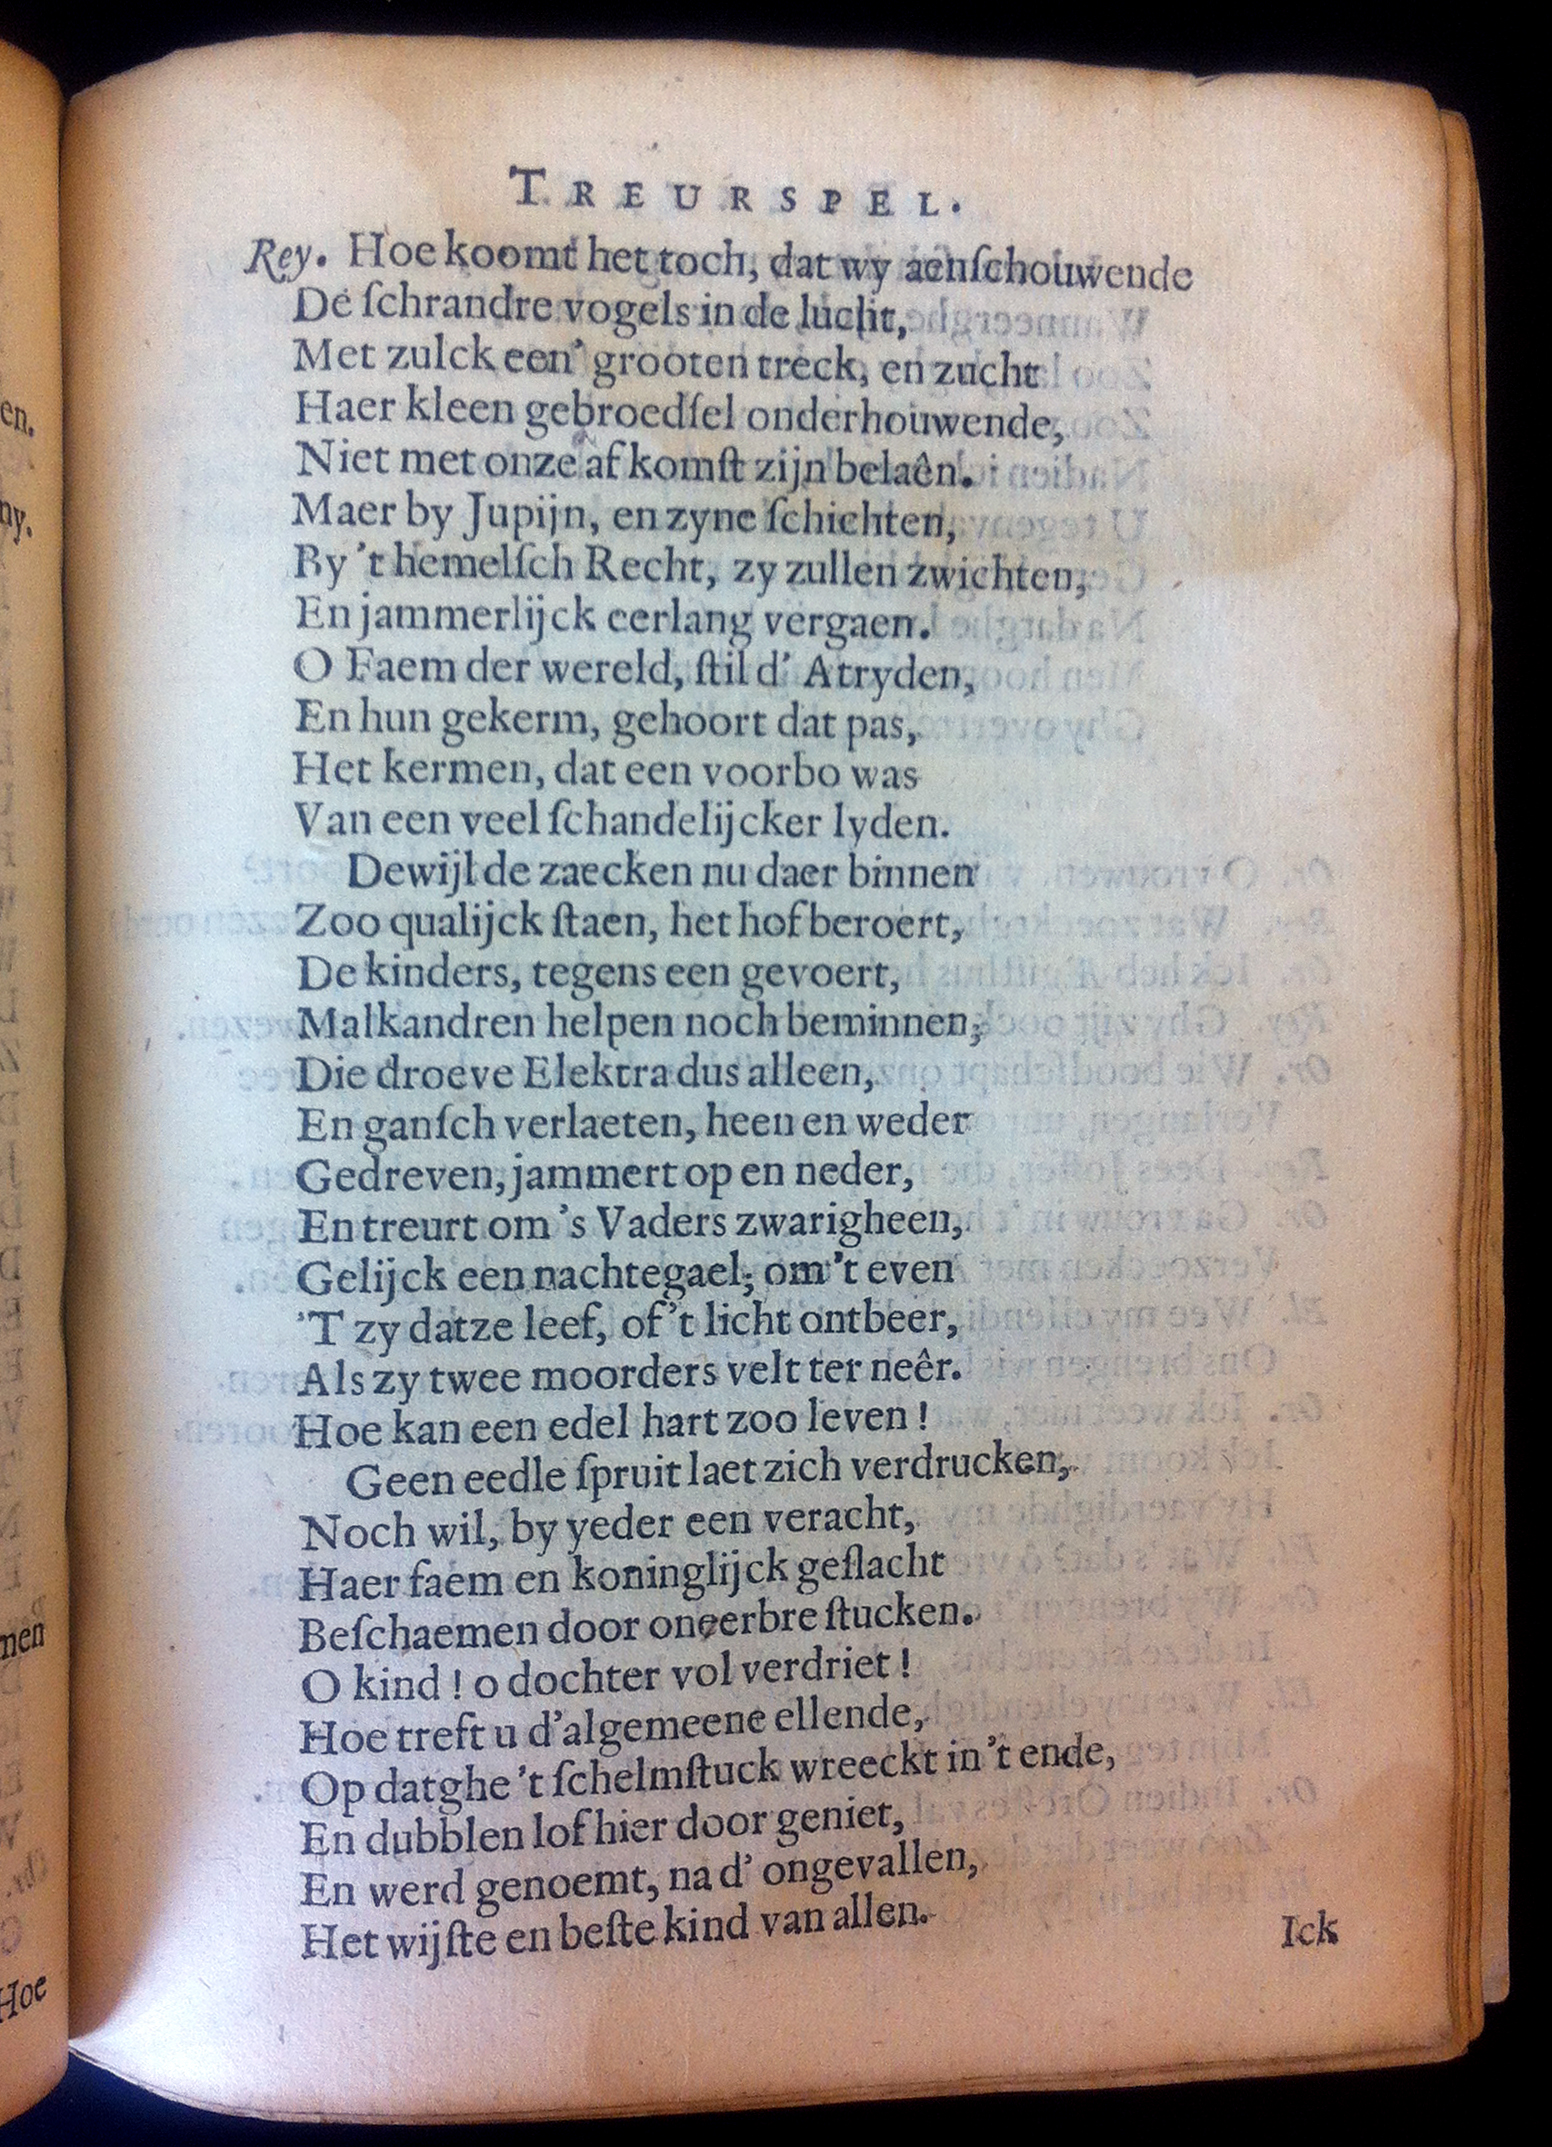 TREURSPEL.
Rey. Hoe koomt het toch, dat wy aenſchouwende
De ſchrandre vogels in de lucht,
Met zulck een' grooten treck, en zucht
Haer kleen gebroedſel onderhouwende,
Niet met onze afkomſt zijn belaên.
Maer by Jupijn, en zyne ſchichten,
By 't hemelſch Recht, zy zullen zwichten,
En jammerlijck eerlang vergaen.
O Faem der wereld, ſtil d' Atryden,
En hun gekerm, gehoort dat pas,
Het kermen, dat een voorbo was
Van een veel ſchandelijcker lyden.
Dewijl de zaecken nu daer binnen
Zoo qualijck ſtaen, het hof beroert,
De kinders, tegens een gevoert,
Malkandren helpen noch beminnen;
Die droeve Elektra dus alleen,
En ganſch verlaeten, heen en weder
Gedreven, jammert op en neder,
En treurt om 's Vaders zwarigheen,
Gelijck een nachtegael; om 't even
'T zy datze leef, of 't licht ontbeer,
Als zy twee moorders velt ter neêr.
Hoe kan een edel hart zoo leven!
Geen eedle ſpruit laet zich verdrucken,
Noch wil, by yeder een veracht,
Haer faem en koninglijck geſlacht
Beſchaemen door oneerbre ſtucken.
O kind! o dochter vol verdriet!
Hoe treft u d'algemeene ellende,
Op datghe 't ſchelmſtuck wreeckt in 't ende,
En dubblen lof hier door geniet,
En werd genoemt, na d' ongevallen,
Het wijſte en beſte kind van allen.
Ick
en.
ny.
nen
Hoe